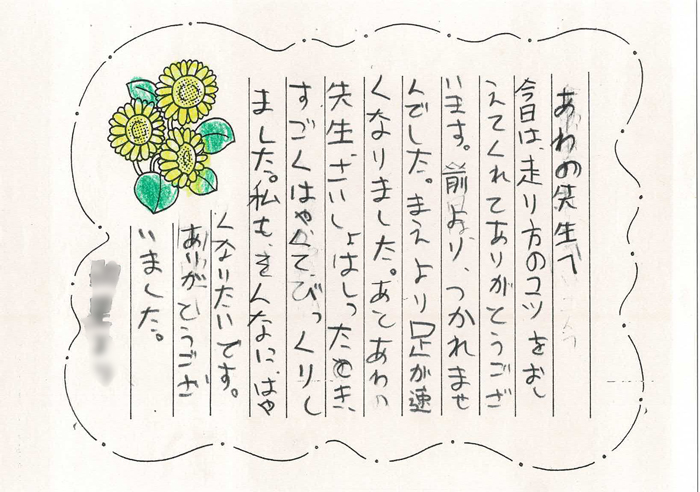 あわの先生へ
今日は、走り方のコツをおし
えてくれてありがとうござ
います。前より、つかれませ
んでした。まえより足が速
くなりました。あとあわの
先生ざいしょはしったとき、
すごくはやくて、びっくりし
ました。私も、そんなにはや
くなりたいです。
ありがとうござ
いました。